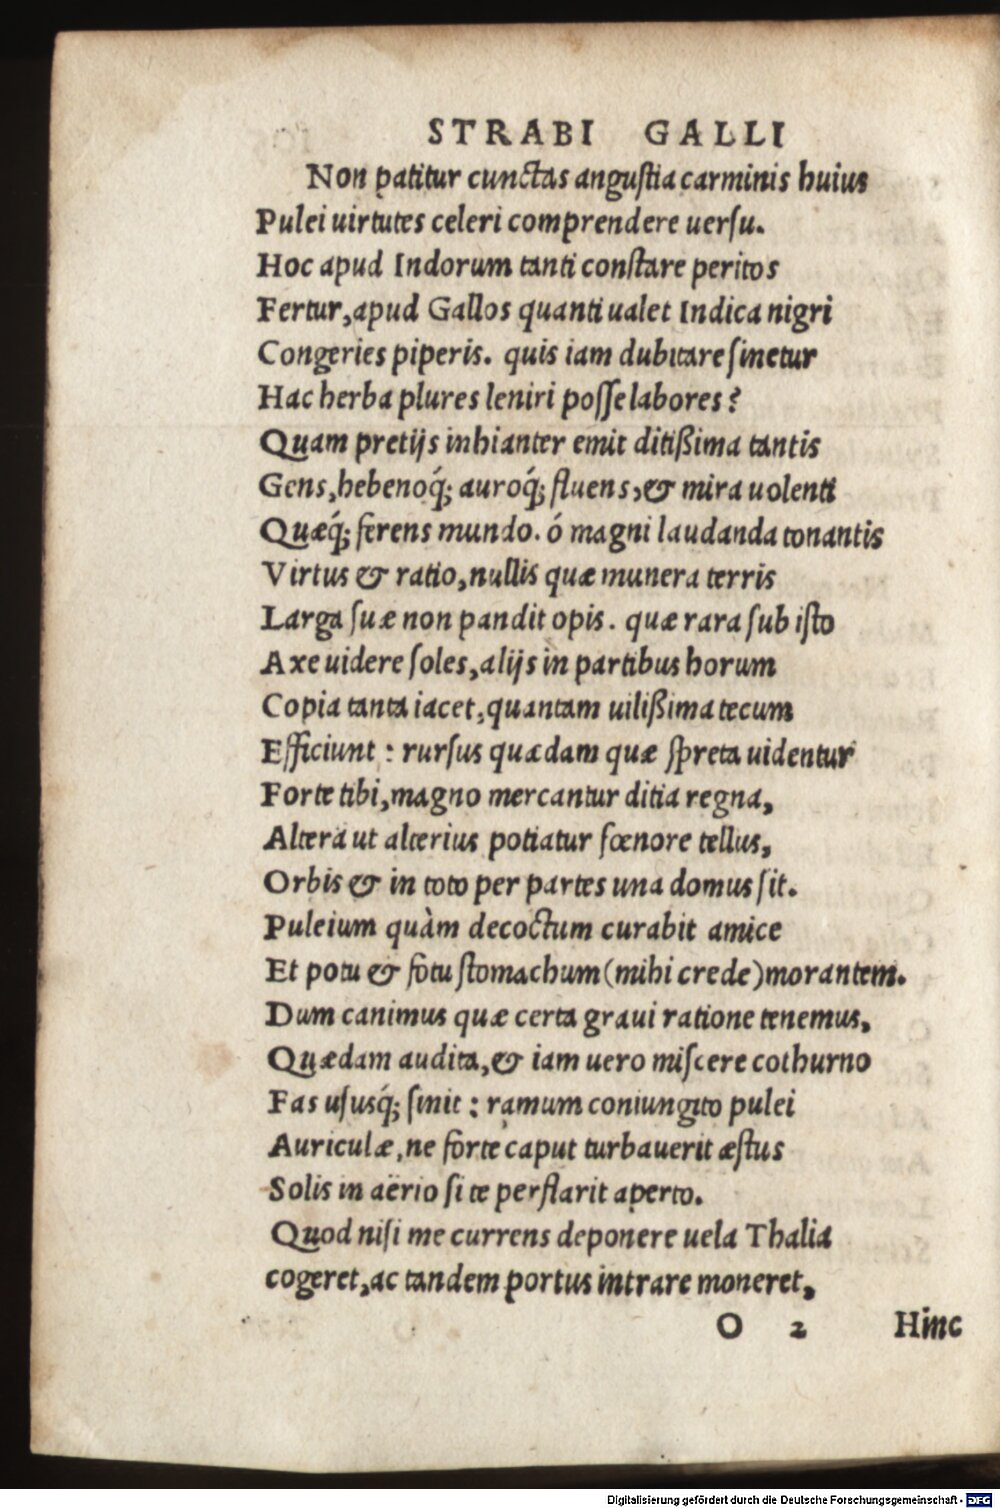 STRABI GALLI
Non patitur cunctas angustia carminis huius
Pulei uirtutes celeri comprendere uersu.
Hoc apud Indorum tanti constare peritos
Fertur, apud Gallos quanti ualet Indica nigri
Congeries piperis. quis iam dubitare sinetur
Hac herba plures leniri posse labores?
Quam pretijs inhianter emit ditißima tantis
Gens, hebenoq́; auroq́; fluens, & mira uolenti
Quæq́; ferens mundo. ó magni laudanda tonantis
Virtus & ratio, nullis quæ munera terris
Larga suæ non pandit opis. quæ rara sub isto
Axe uidere soles, alijs in partibus horum
Copia tanta iacet, quantam uilißima tecum
Efficiunt: rursus quædam quæ spreta uidentur
Forte tibi, magno mercantur ditia regna,
Altera ut alterius potiatur fœnore tellus,
Orbis & in toto per partes una domus sit.
Puleium quàm decoctum curabit amice
Et potu & fotu stomachum (mihi crede) morantem.
Dum canimus quæ certa graui ratione tenemus,
Quædam audita, & iam uero miscere cothurno
Fas ususq́; sinit: ramum coniungito pulei
Auriculæ, ne forte caput turbauerit æstus
Solis in aërio si te perflarit aperto.
Quod nisi me currens deponere uela Thalia
cogeret, ac tandem portus intrare moneret,
O 2 Hinc
Digitalisierung gefördert durch die Deutsche Forschungsgemeinschaft - DFG